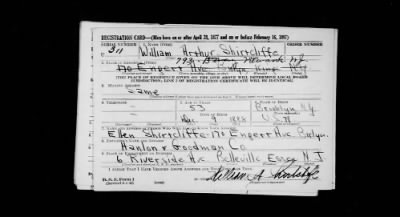 REGISTRATION CARD—(Men born on or after April 28, 1877 and on or before February 16, 1897)
SERIAL NUMBER 1. NAME (Print) ORDER NUMBER
311 William Arthur Shirtcliffe
793 Newark NJ
170 Engert Ave Kings N.Y.
(THE PLACE OF RESIDENCE GIVEN ON THE LINE ABOVE WILL DETERMINE LOCAL BOARD
JURISDICTION; LINE 2 OF REGISTRATION CERTIFICATE WILL BE IDENTICAL)
3. MAILING ADDRESS
Same
4. TELEPHONE 5. AGE IN YEARS 6. PLACE OF BIRTH
53 Brooklyn N.Y.
DATE OF BIRTH
Dec 9 1888 U.S.A.
Ellen Shirtcliffe 170 Engert Ave Bklyn.
Hanlon & Goodman Co
6 Riverside Ave Belleville Essex N J
I AFFIRM THAT I HAVE VERIFIED ABOVE ANSWERS AND THAT THEY ARE TRUE.
D. S. S. Form 1 William A Shirtcliffe